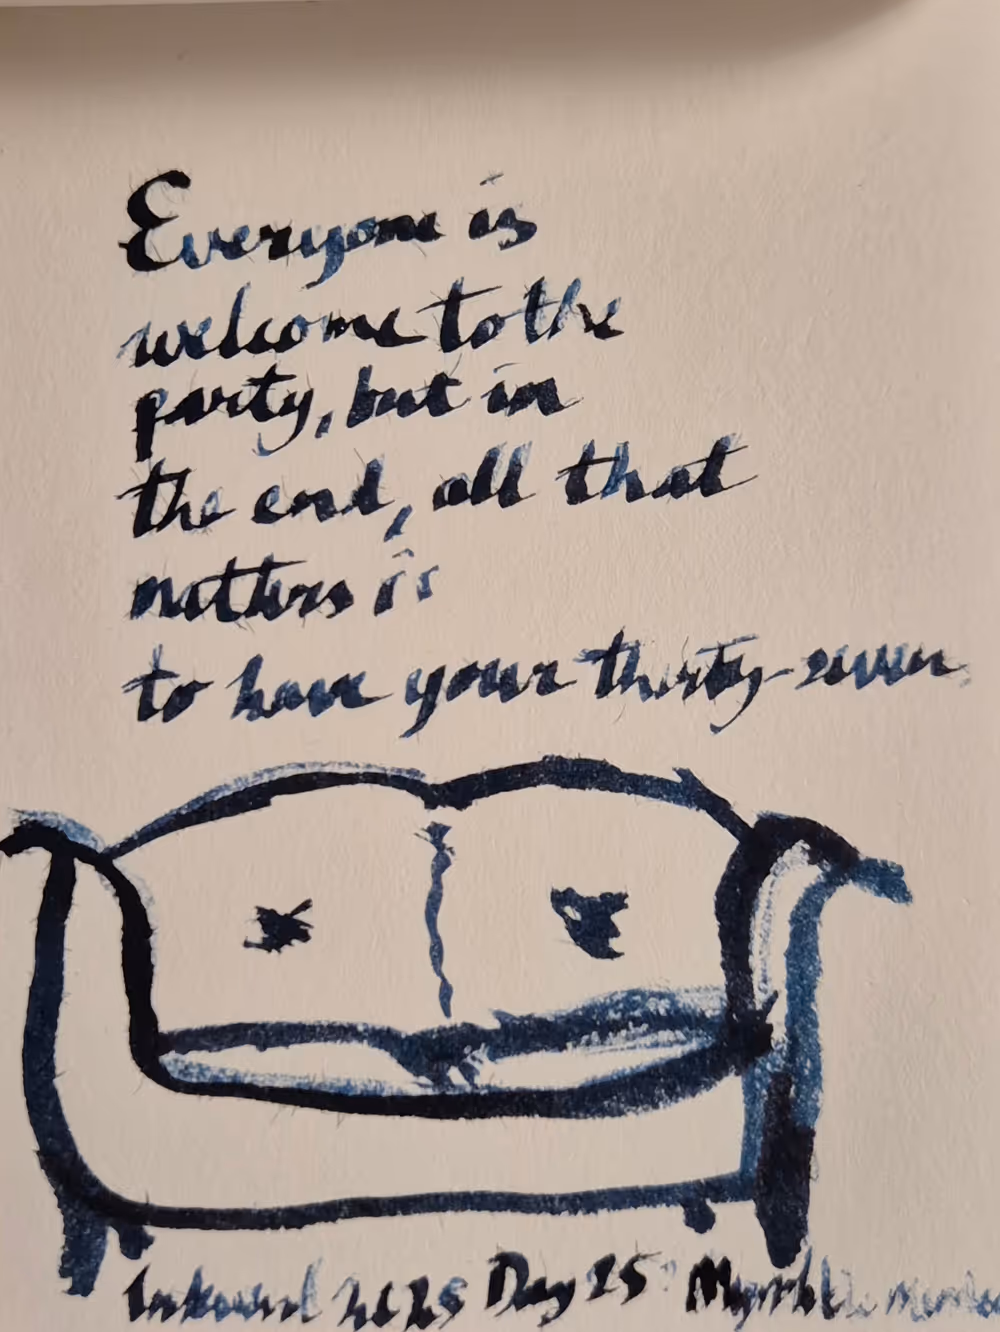 Everyone is
welcome to the
party, but in
the end, all that
matters is
to have your thirty-seven
2025 Day 25